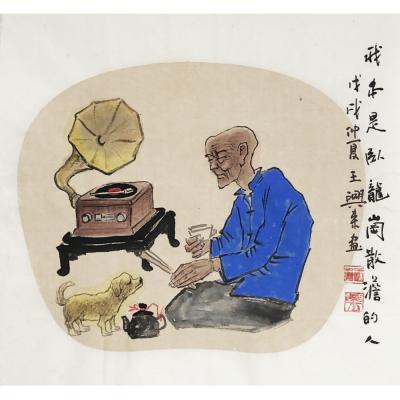 我本是臥龍崗散澹的人
戊戌仲夏王興来畫